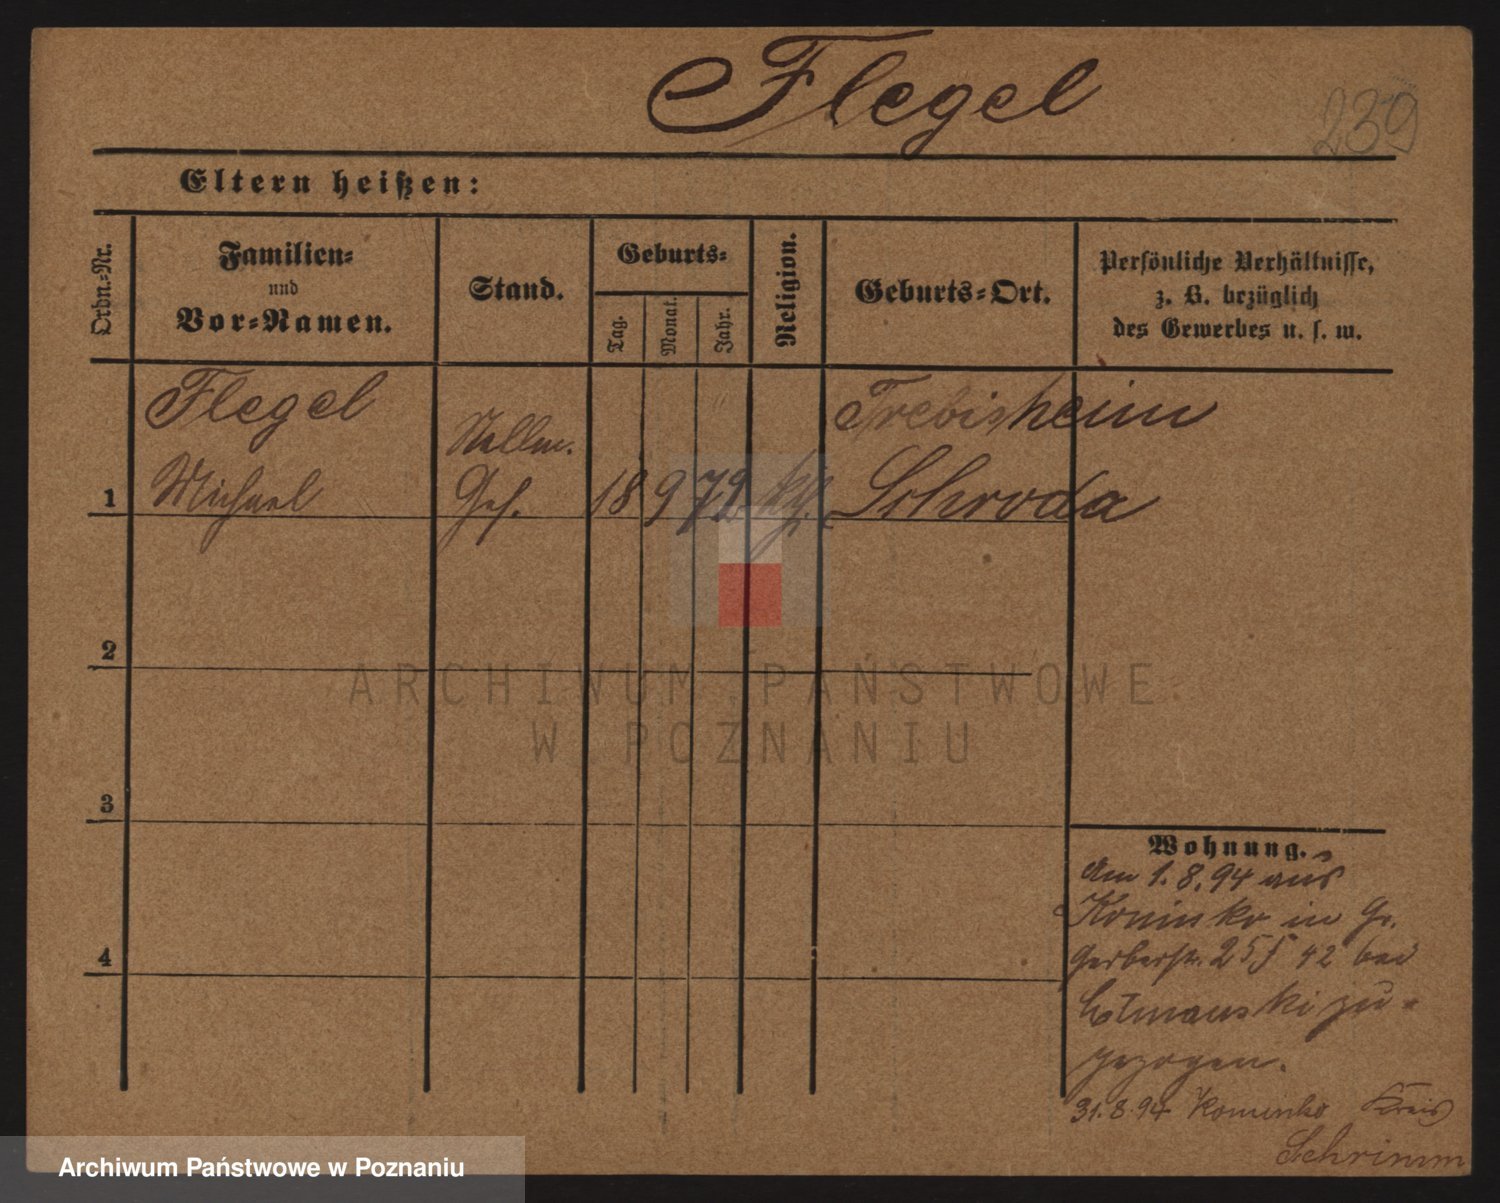 Flegel
239
Eltern heißen:
Ordn.-Nr.
Familien-
und
Vor-Namen.
Stand.
Geburts-
Tag.
Monat.
Jahr.
Religion.
Geburts-Ort.
Persönliche Verhältnisse,
z. B. bezüglich
des Gewerbes u. s. w.
Flegel
Michael
Stellm.
Ges.
18 9 72
kth.
Trebisheim
Schroda
1
2
3
4
Wohnung.
Am 1.8.94 aus
Koninko in Gr.
Gerberstr. 25/ 42 bei
zu-
gezogen.
31.8.94 Kreis
Schrimm
ARCHIWUM PAŃSTWOWE
W POZNANIU
Archiwum Państwowe w Poznaniu